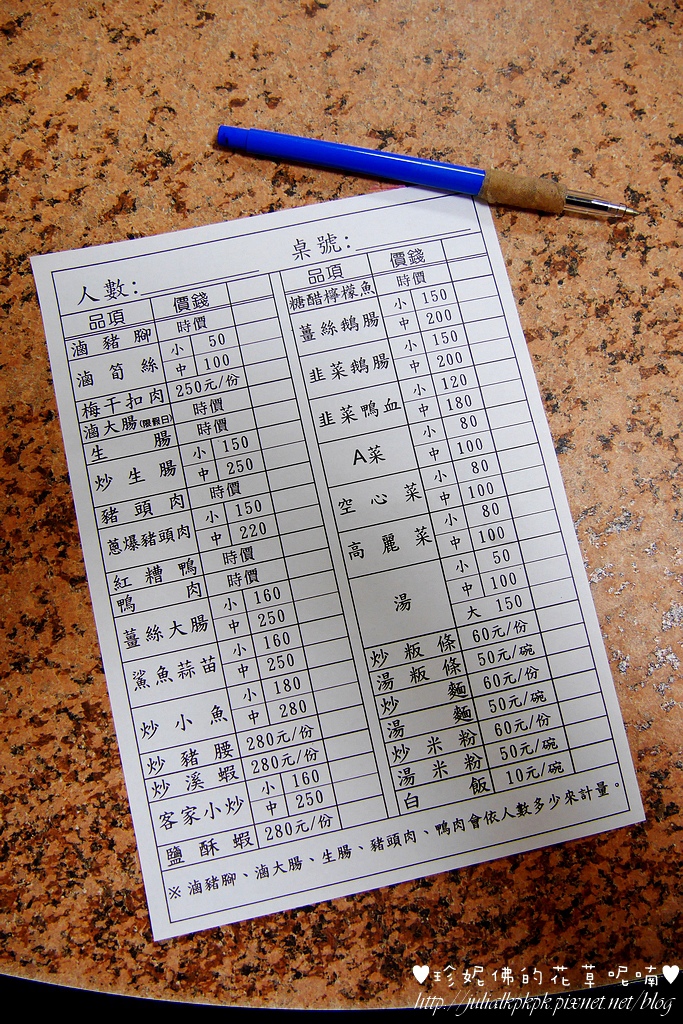 人數:
桌號:
品項 價錢
滷豬腳 時價
滷筍絲 小 50
中 100
梅干扣肉 250元/份
滷大腸(限假日) 時價
生腸 時價
炒生腸 小 150
中 250
豬頭肉 時價
蔥爆豬頭肉 小 150
中 220
紅糟鴨 時價
鴨肉 時價
薑絲大腸 小 160
中 250
鯊魚蒜苗 小 160
中 250
炒小魚 小 180
中 280
炒豬腰 280元/份
炒溪蝦 280元/份
客家小炒 小 160
中 250
鹽酥蝦 280元/份
品項 價錢
糖醋檸檬魚 時價
薑絲鵝腸 小 150
中 200
韭菜鵝腸 小 150
中 200
韭菜鴨血 小 120
中 180
A菜 小 80
中 100
空心菜 小 80
中 100
高麗菜 小 80
中 100
湯 小 50
中 100
大 150
炒粄條 60元/份
湯粄條 50元/碗
炒麵 60元/份
湯麵 50元/碗
炒米粉 60元/份
湯米粉 50元/碗
白飯 10元/碗
※滷豬腳、滷大腸、生腸、豬頭肉、鴨肉會依人數多少來計量。
♥珍妮佛的花草呢喃♥
http://julialkpkpk.pixnet.net/blog